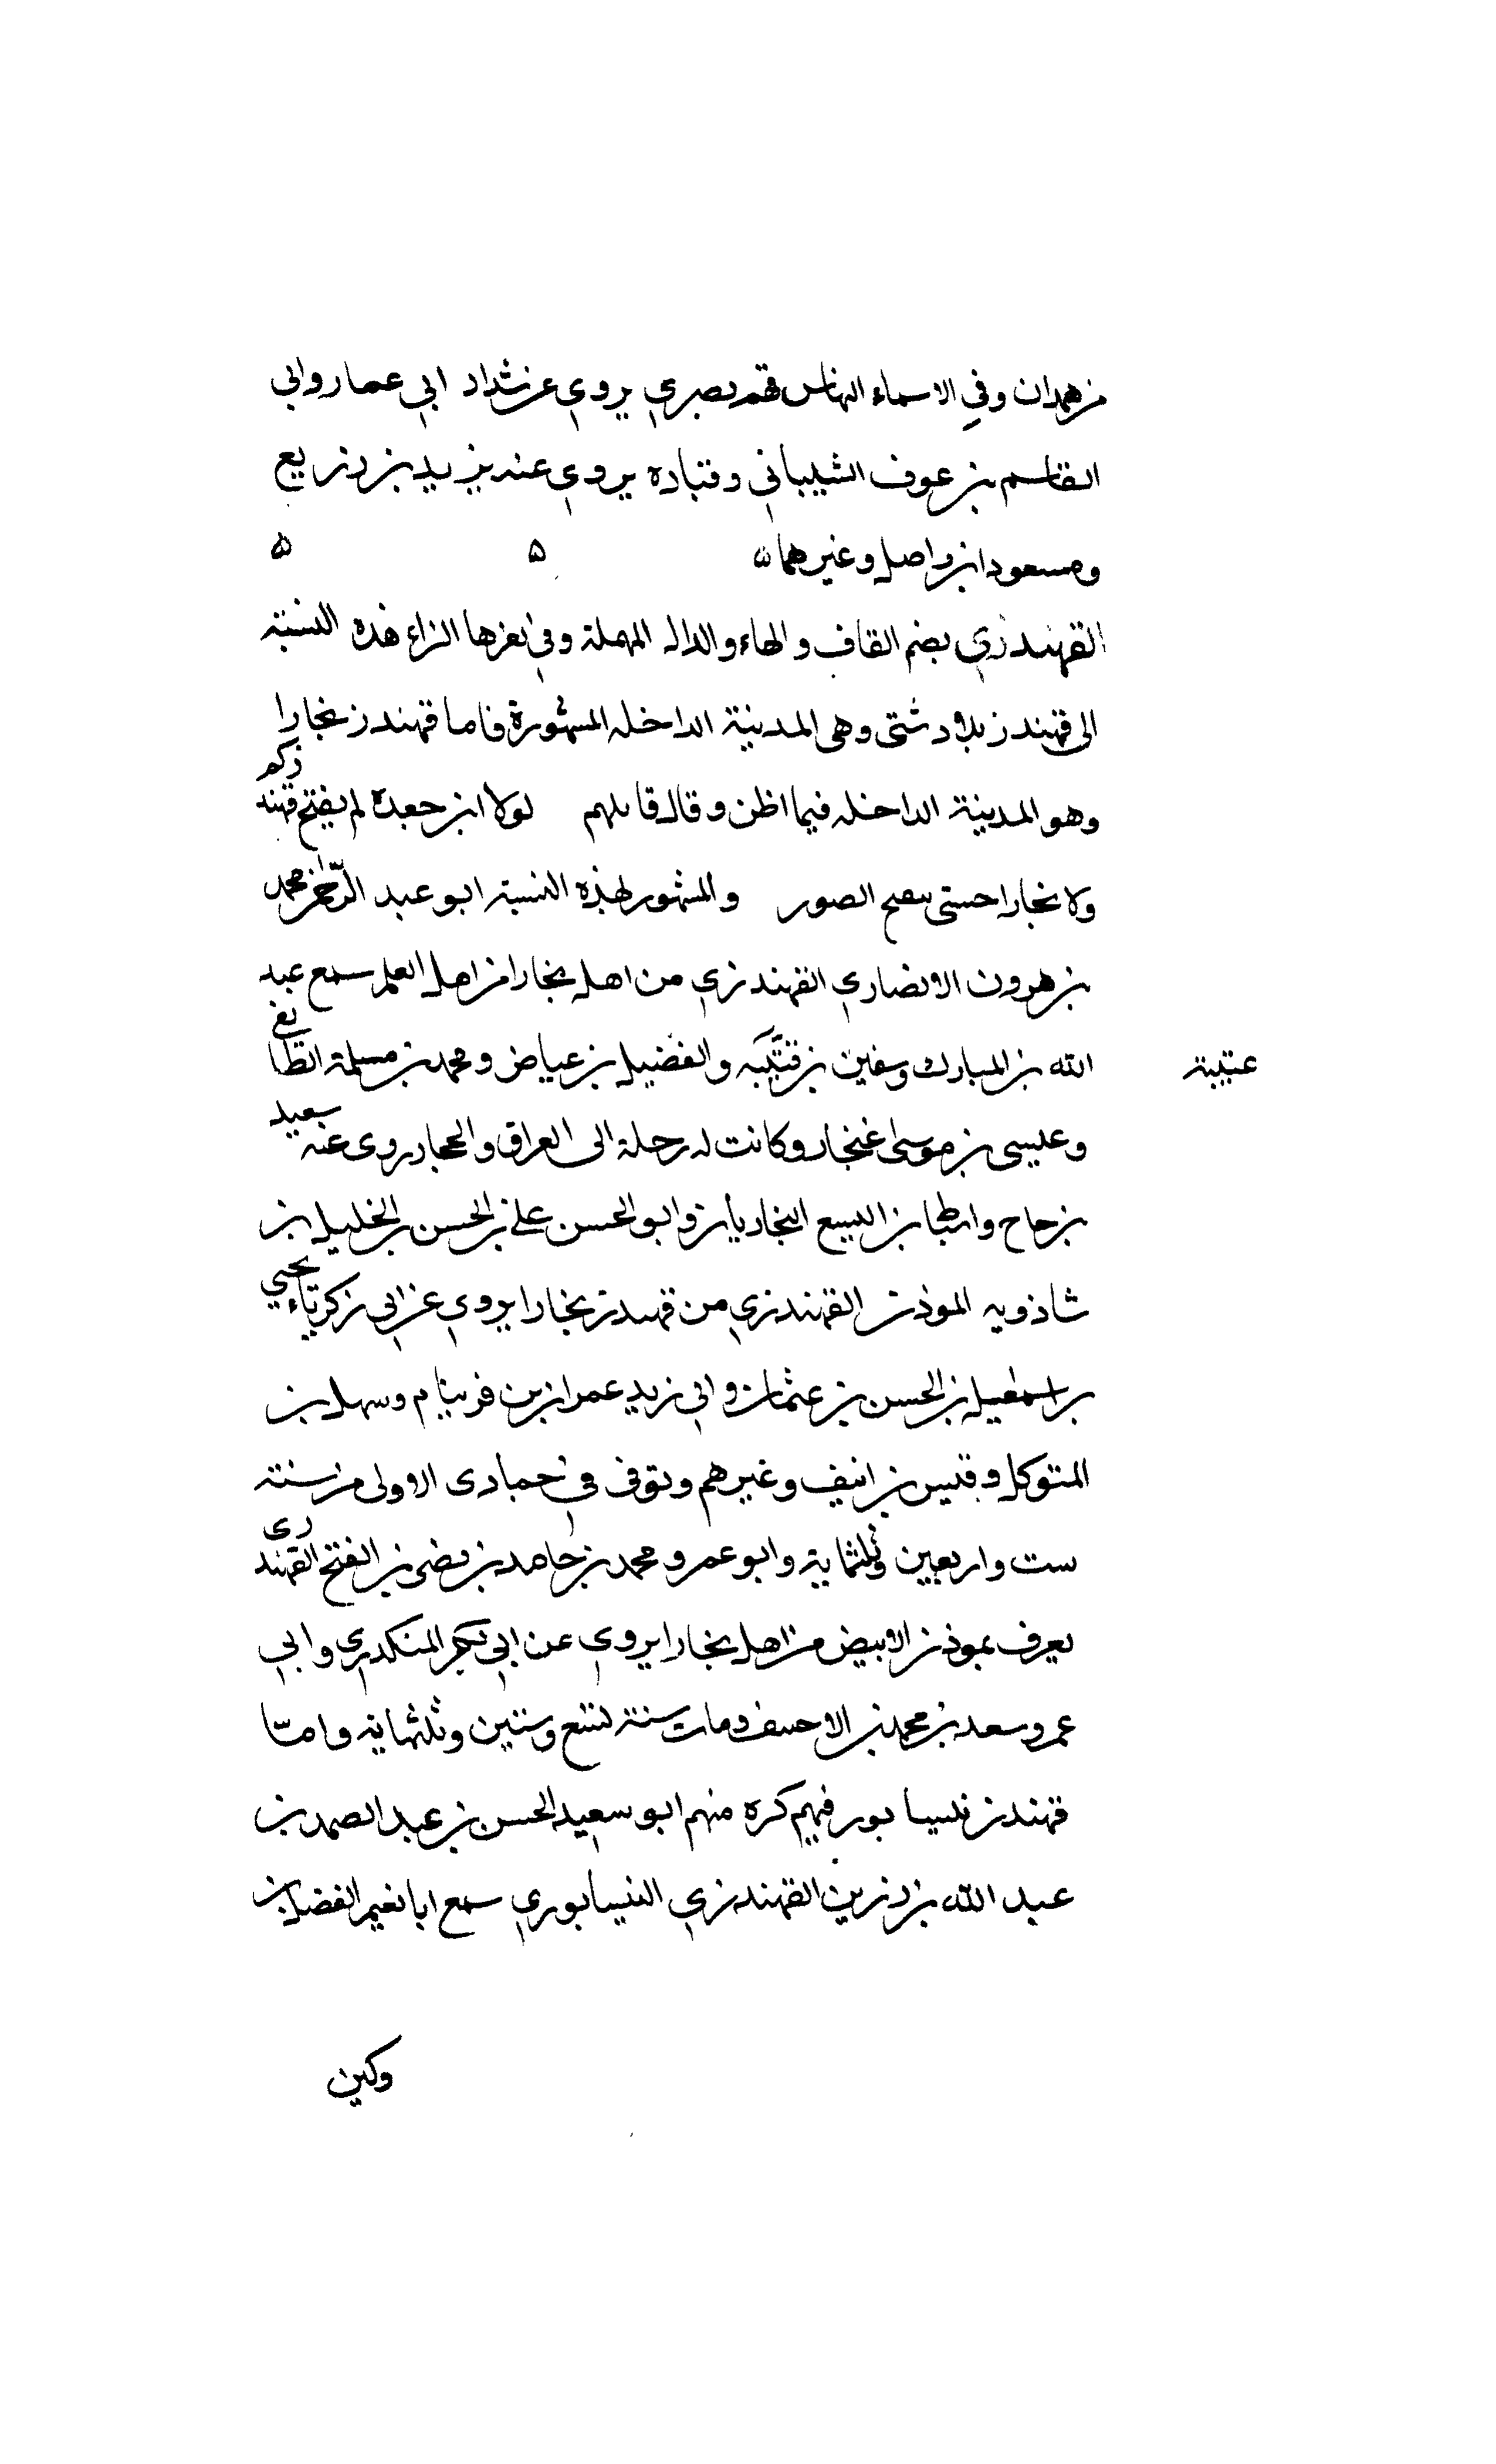 من همدان وفي الاسماء النهاس بن قهم بصري يروي عن شداد ابي عمار وابي
القاسم بن عوف الشيباني وقتاده يروي عنه يزيد بن زريع
ومسعود ابن واصل وغيرهما ه ه ه
القهندزي بضم القاف والهاء والدال المهملة وفي اخرها الزاء هذه النسبة
الى قهندز بلاد شتى وهى المدينة الداخله المسورة فاما قهندز بخارا
وهو المدينة الداخله فيما اظن وقال قايلهم لولا ابن جعدة لم يفتح قهندزكم
ولا بخارا حتى ينفخ الصور والمشهور بهذه النسبة ابو عبد الرحمن محمد
بن هرون الانصاري القهندزي من اهل بخارا من اهل العلم سمع عبد
الله بن المبارك وسفين بن قتيبه والفضيل بن عياض ومحمد بن مسلمة الطايفي
عتيبة
وعيسى بن موسى غنجار وكانت له رحلة الى العراق والحجاز روى عنه سعيد
بن جناح واسباط بن اليسع البخاريان وابو الحسن علي بن الحسن بن الخليل بن
شاذويه الموذن القهندزي من قهندز بخارا يروي عن ابي زكرياء يحيي
بن اسمعيل بن الحسن بن عثمان وابي زيد عمران بن فرينام وسهل بن
المتوكل وقيس بن انيف وغيرهم وتوفى في جمادى الاولى من سنة
ست واربعين وثلثماية وابو عمرو محمد بن حامد بن مضى بن الفتح القهندزى
يعرف بموذن الابيض من اهل بخارا يروي عن ابي بكر المنكدري وابي
عمرو سعد بن محمد بن الاحنف ومات سنة تسع وستين وثلثماية وامّا
قهندز نيسابور فهم كره منهم ابو سعيد الحسن بن عبد الصمد بن
عبد الله بن رزين القهندزي النيسابوري سمع ابا نعيم الفضل بن
وكين